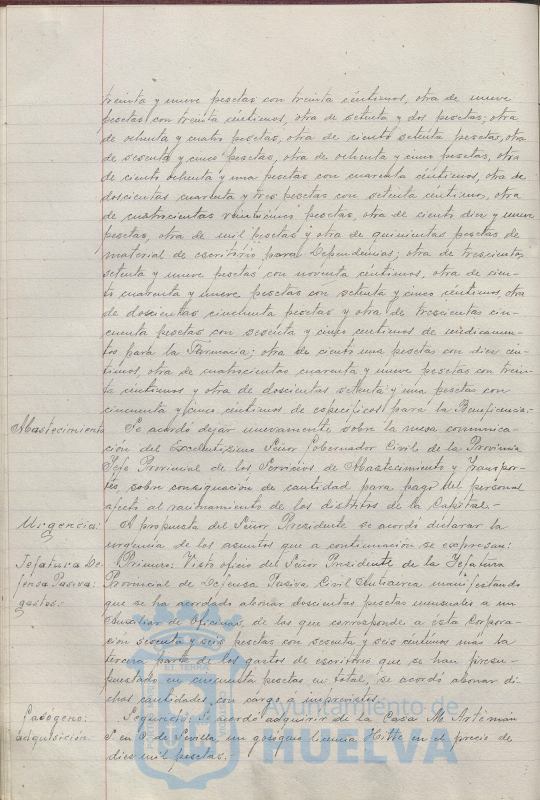 treinta y nueve pesetas con treinta céntimos, otra de nueve
pesetas con treinta céntimos, otra de setenta y dos pesetas; otra
de ochenta y cuatro pesetas; otra de ciento setenta pesetas, otra
de sesenta y cinco pesetas, otra de ochenta y cinco pesetas, otra
de ciento ochenta y una pesetas con cuarenta céntimos, otra de
doscientas cuarenta y tres pesetas con setenta céntimos, otra
de cuatrocientas veinticinco pesetas, otra de ciento diez y nueve
pesetas, otra de mil pesetas y otra de quinientas pesetas de
material de escritorio para Dependencias; otra de trescientas
setenta y nueve pesetas con noventa céntimos, otra de cien-
to cuarenta y nueve pesetas con setenta y cinco céntimos, otra
de doscientas cincuenta pesetas y otra de trescientas cin-
cuenta pesetas con sesenta y cinco centimos de medicamen-
tos para la Farmacia; otra de ciento una pesetas con diez cén-
timos, otra de cuatrocientas cuarenta y nueve pesetas con trein-
ta céntimos y otra de doscientas setenta y una pesetas con
cincuenta y cinco céntimos de específicos para la Beneficencia.-
Abastecimiento Se acordó dejar nuevamente sobre la mesa comunica-
ción del Excelentísimo Señor Gobernador Civil de la Provincia
Jefe Provincial de los Servicios de Abastecimiento y Transpor-
tes, sobre consignación de cantidad para pago del personal
afecto al racionamiento de los distritos de la Capital.-
Urgencia: A propuesta del Señor Presidente se acordó declarar la
urgencia de los asuntos que a continuación se expresan:
Jefatura De- Primero: Visto oficio del Señor Presidente de la Jefatura
fensa Pasiva: Provincial de Defensa Pasiva Civil Antiaerea manifestando
gastos: que se ha acordado abonar doscientas pesetas mensuales a un
Auxiliar de Oficinas, de las que corresponde a esta Corpora-
ción sesenta y seis pesetas con sesenta y seis centimos más la
tercera parte de los gastos de escritorio que se han presu-
puestado en cincuenta pesetas en total, se acordó abonar di-
chas cantidades con cargo a imprevistos.
Gasógeno: Segundo: Se acordó adquirir de la Casa M. Artemán
adquisición. S en C. de Sevilla un gasógeno licencia en el precio de
diez mil pesetas.-
Ayuntamiento de
HUELVA